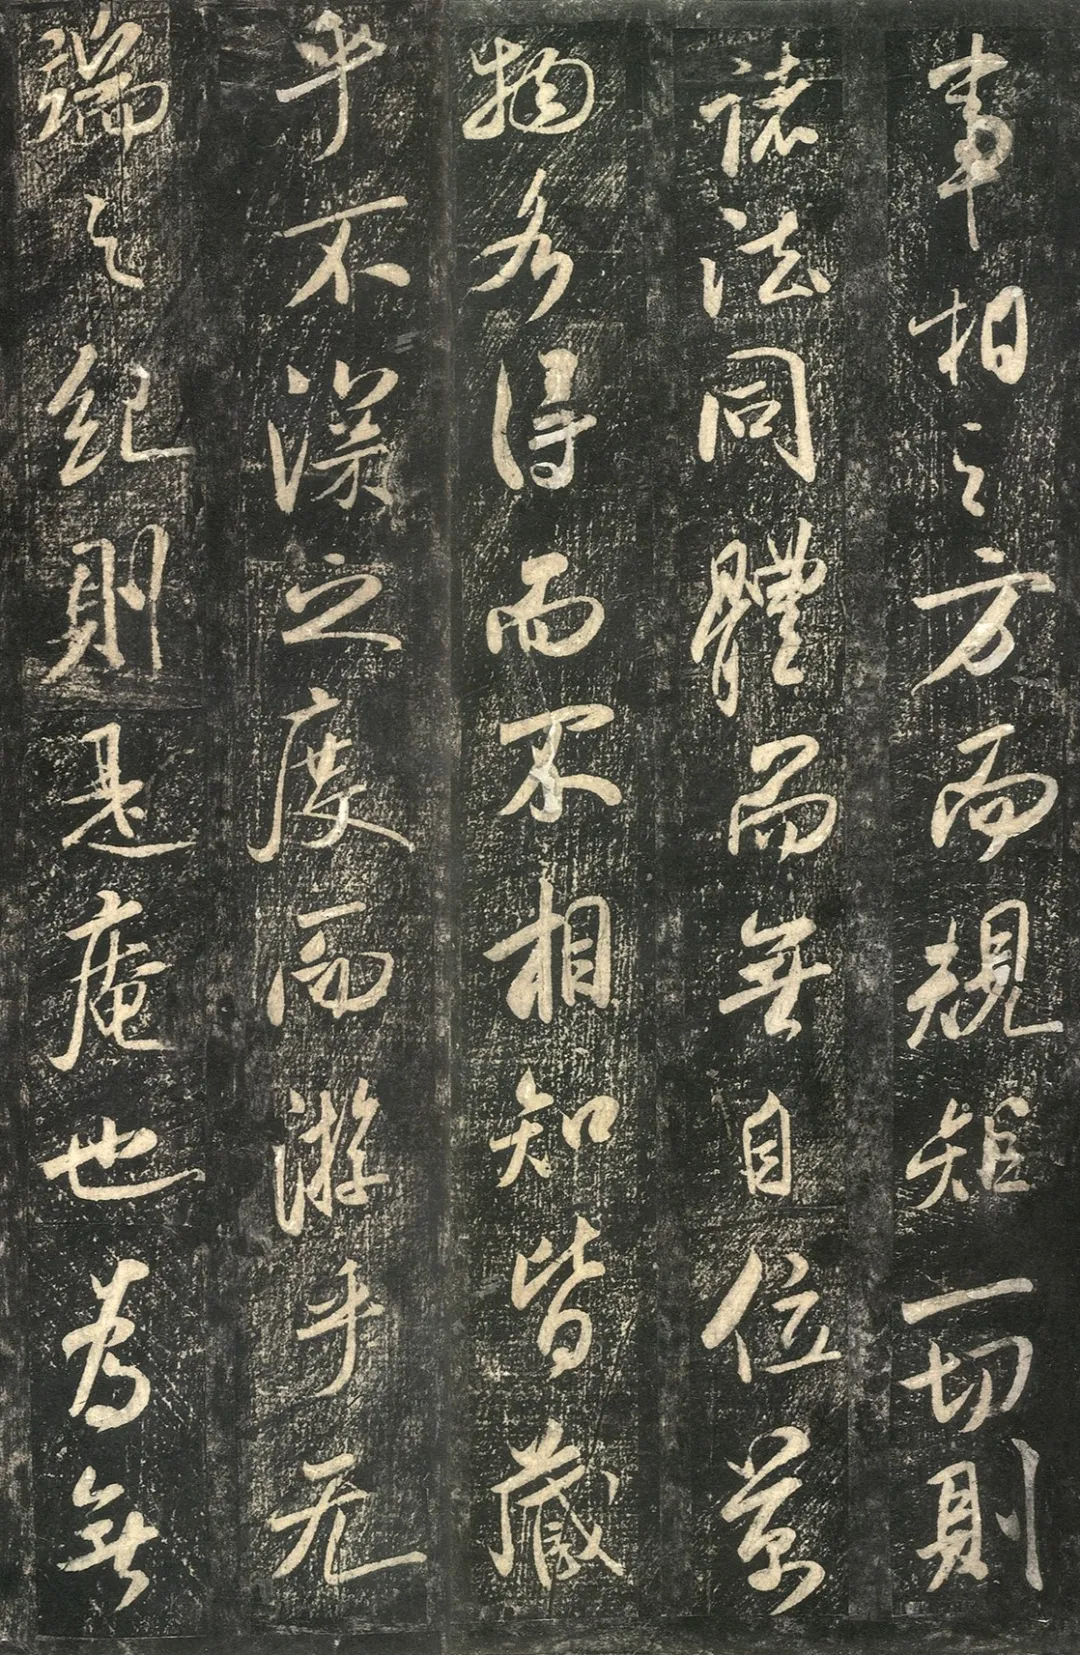 事相之方而規矩一切則
諸法同體而無自位萬
物各得而不相知皆藏
乎不深之度而游乎无
端之紀則是庵也為無